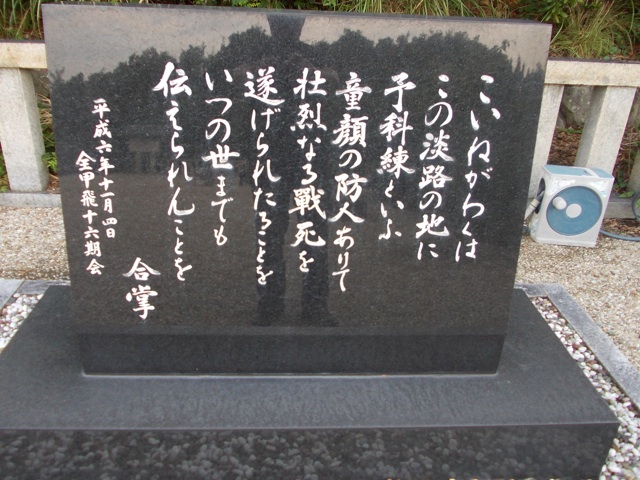 こいねがわくは
この淡路の地に
予科練といふ
童顔の防人ありて
壮烈なる戦死を
遂げられたることを
いつの世までも
伝えられんことを
合掌
平成六年十一月四日
全甲飛十六期会